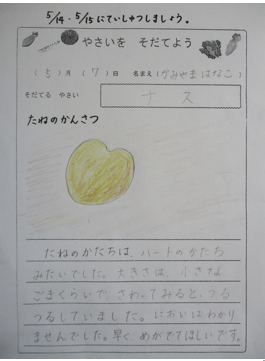 5/14・5/15にていしゅつしましょう。
やさいを そだてよう
(5)月(7)日 名まえ(かみやまはなこ)
そだてる やさい ナス
たねのかんさつ
たねのかたちは、ハートのかたち
みたいでした。大きさは、小さな
ごまくらいで、さわってみると、つる
つるしていました。においはわかり
ませんでした。早く、めがでてほしいです。